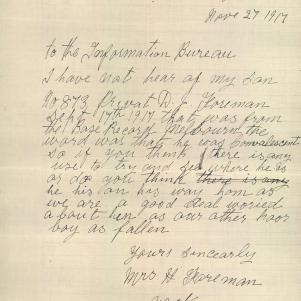 Nove 27 1917
to the Information Bureau
I have not hear of my son
No 873 Privat D. E. Foreman
Sept 17th 1917 that was from
the Base Record Melbourn the
word was that he was Convalescent
so if you think there is any
use to try and get where he is
or do you think there is any
he his on his way hom as
we are a good deal woried
about him as our other
boy as fallen
Yours Sincearly
Mrs H Foreman